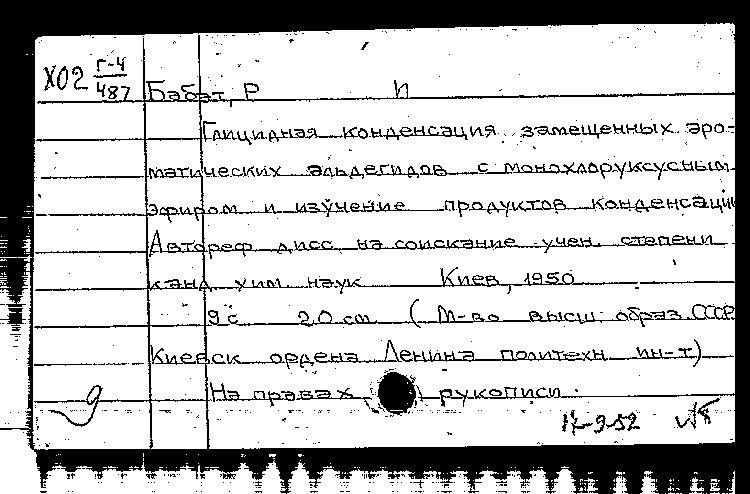 Х02 Г-4/487 Бабат, Р И
Глицидная конденсация замещенных аро-
матических альдегидов с монохлоруксусным
эфиром и изучение продуктов конденсации
Автореф дисс. на соискание учен. степени
канд хим наук Киев, 1950
9 с 20 cm (М-во высш. образ. СССР
Киевск ордена Ленина политехн ин-т)
На правах рукописи.
g